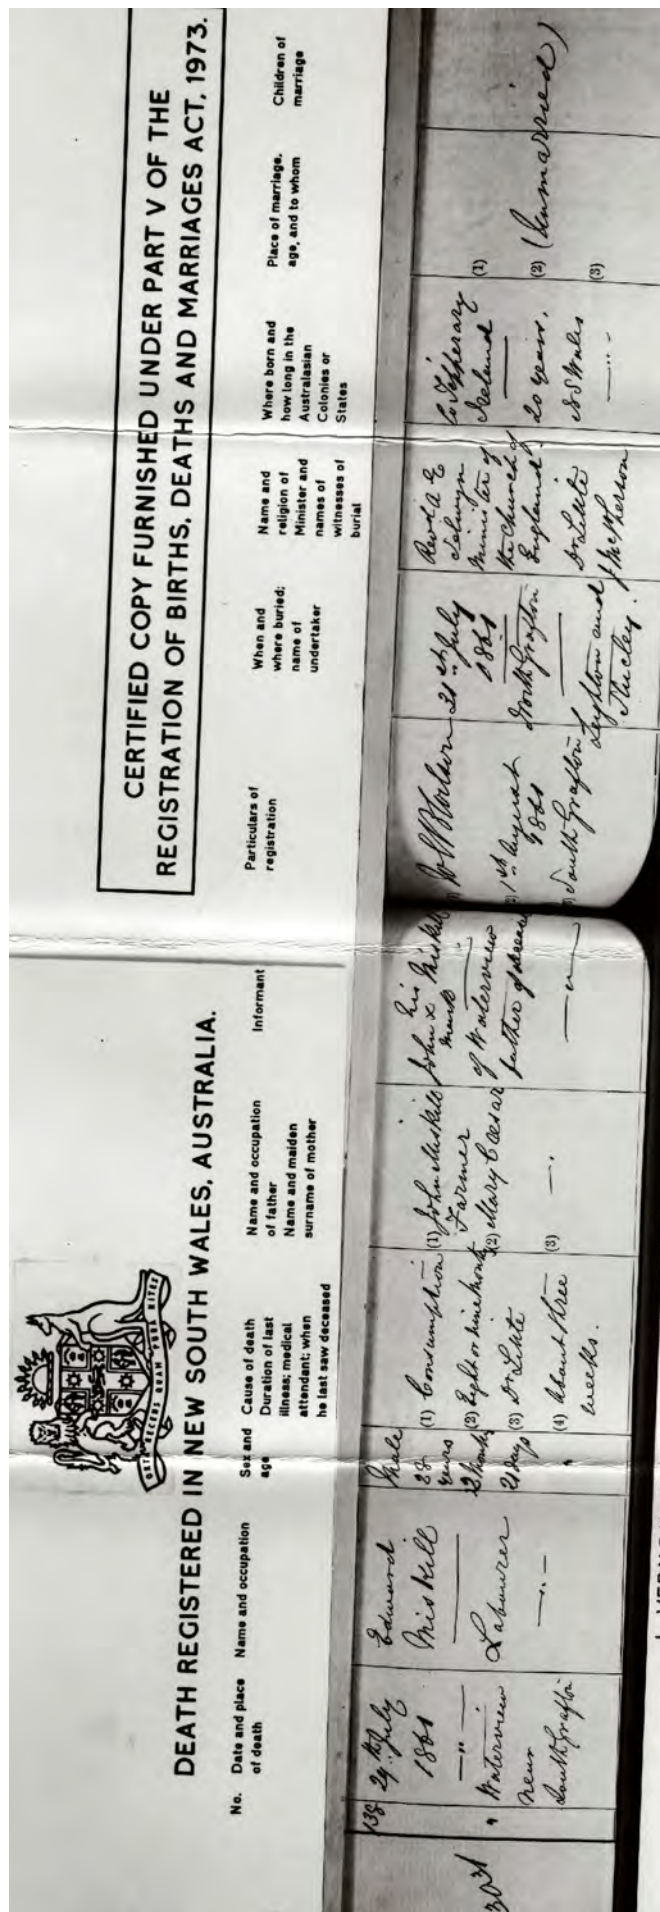 CERTIFIED COPY FURNISHED UNDER PART V OF THE
REGISTRATION OF BIRTHS, DEATHS AND MARRIAGES ACT, 1973.
DEATH REGISTERED IN NEW SOUTH WALES, AUSTRALIA.
ORTA RECENS QUAM PURA NITES
No.
Date and place
of death
Name and occupation
Sex and
age
Cause of death
Duration of last
illness; medical
attendant; when
he last saw deceased
Name and occupation
of father
Name and maiden
surname of mother
Informant
Particulars of
registration
When and
where buried;
name of
undertaker
Name and
religion of
Minister and
names of
witnesses of
burial
Where born and
how long in the
Australasian
Colonies or
States
Place of marriage,
age, and to whom
Children of
marriage
138
29th July
1861
Waterview
near
South Grafton
Edward
Miskill
Labourer
Male
28
years
months
21 days
(1) Consumption
(2) Eight or nine months
(3) Dr Little
(4) About three
weeks.
(1) John Miskill
Farmer
(2) Mary Caesar
(3)
his
John x Miskill
mark
of Waterview
father of deceased
1st August
1861
South Grafton
31st July
1861
North Grafton
Leighton and
Revd A E
Selwyn
Minister of
the Church of
England.
Dr Little
J McPherson
Co Tipperary
Ireland
20 years.
N S Wales
(1)
(2) (Unmarried)
(3)